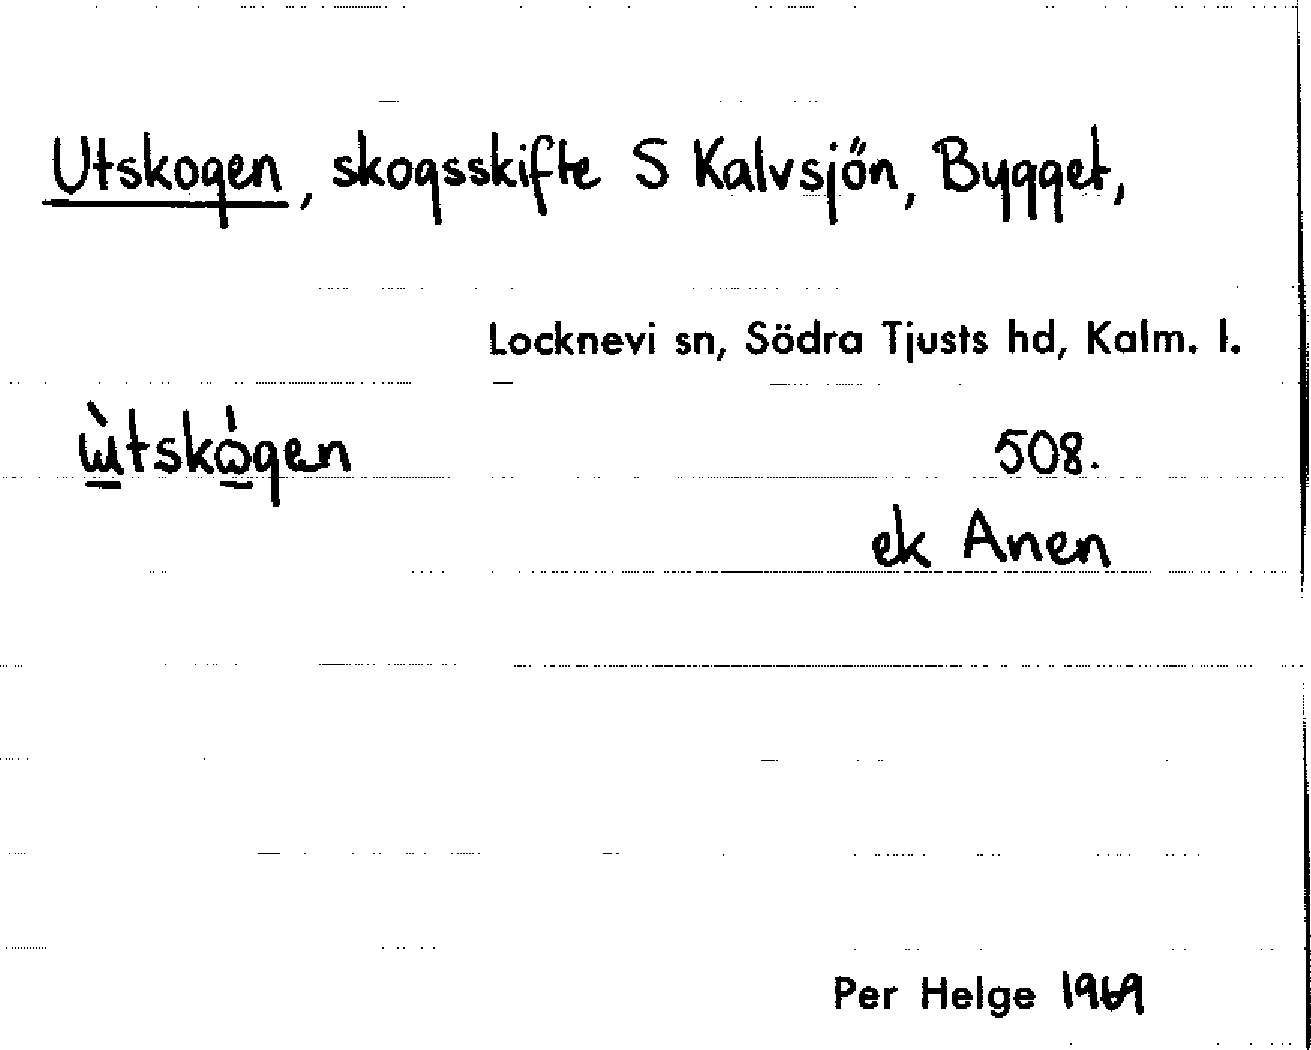 Utskogen, skogsskifte S Kalvsjön, Bygget,
Locknevi sn, Södra Tjusts hd, Kalm. l.
ɯ̲̀tskώ̲gen 508.
ek Anen
Per Helge 1969